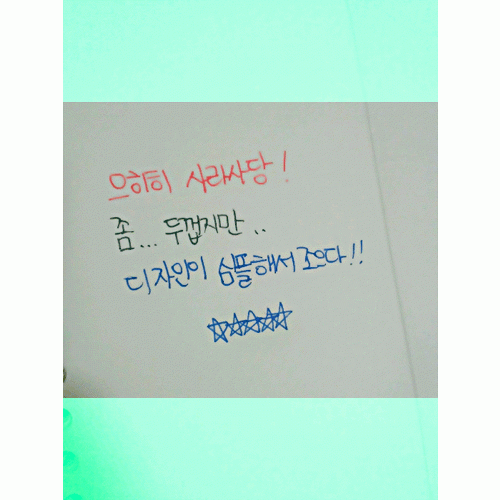 으히히 사라사당!
좀... 두껍지만..
디자인이 심플해서 조으다!!
☆☆☆☆☆